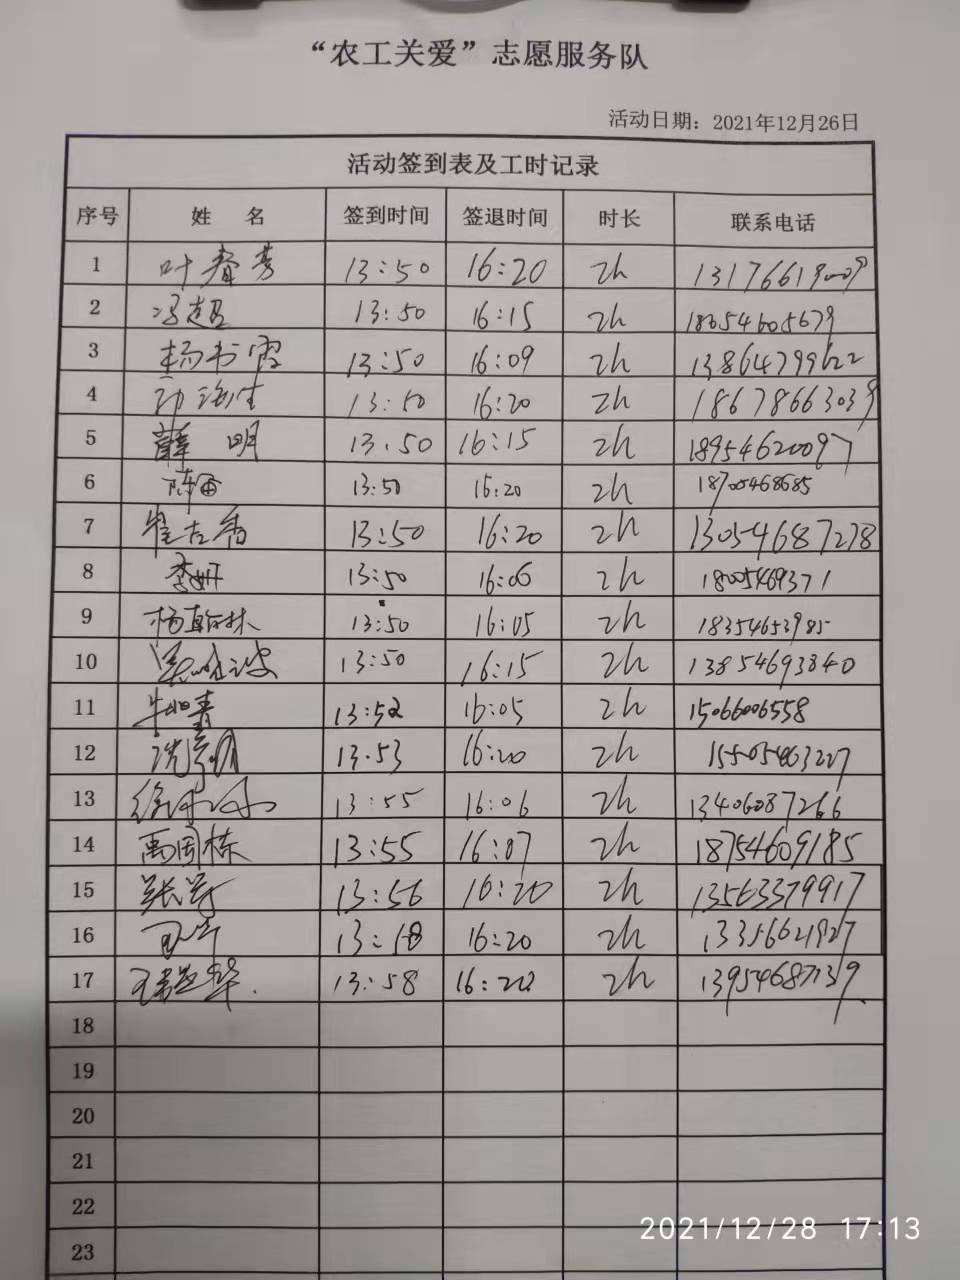 “农工关爱”志愿服务队
活动日期：2021年12月26日
活动签到表及工时记录
序号 姓 名 签到时间 签退时间 时长 联系电话
1 叶春芳 13:50 16:20 2h 13176619009
2 冯超 13:50 16:15 2h 18054605679
3 杨书霞 13:50 16:09 2h 13864799622
4 13:50 16:20 2h 18678663039
5 薛明 13.50 16:15 2h 18954620097
6 陈雷 13:50 16:20 2h 18705468685
7 13:50 16:20 2h 13054687278
8 李妍 13:50 16:06 2h 18005469371
9 杨翰林 13:50 16:05 2h 18354653985
10 13:50 16:15 2h 13854693840
11 13:52 16:05 2h 15066006558
12 13.53 16:20 2h 15505463227
13 13:55 16:06 2h 13406087266
14 禹国栋 13:55 16:07 2h 18754609185
15 13:56 16:20 2h 13563379917
16 16:20 2h 13356621927
17 13:58 16:20 2h 13954687139
18
19
20
21
22
23
2021/12/28 17:13